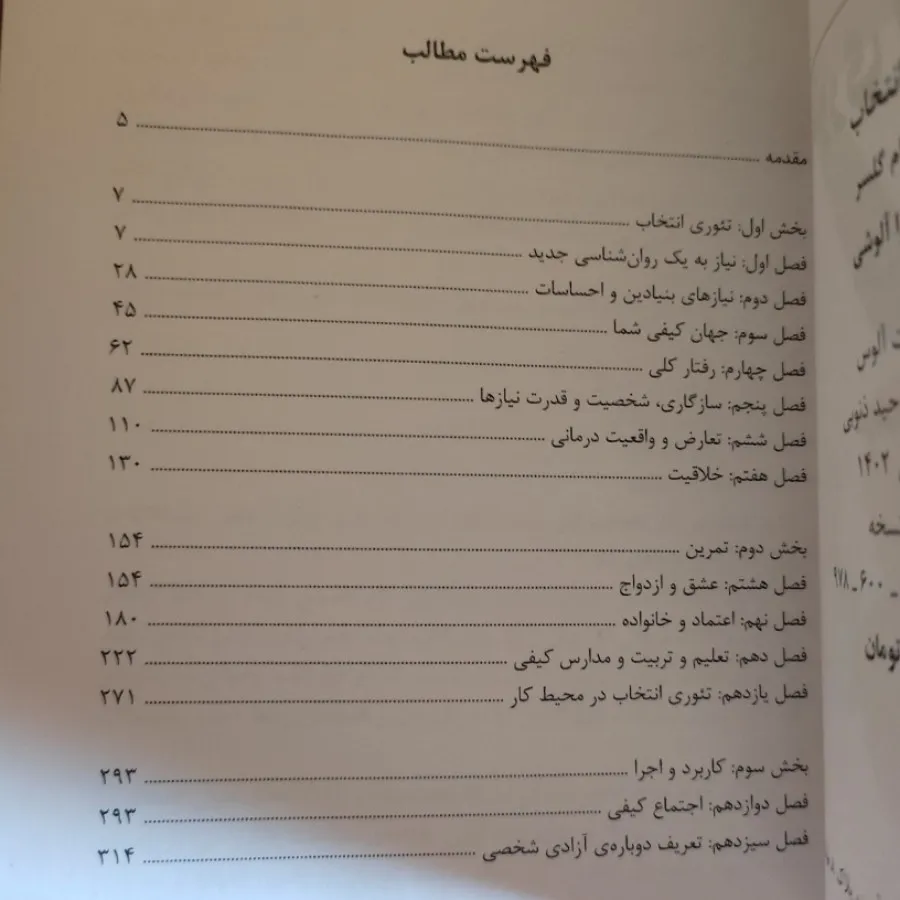 فهرست مطالب
مقدمه ........ ۵
بخش اول: تئوری انتخاب ........ ۷
فصل اول: نیاز به یک روان‌شناسی جدید ........ ۷
فصل دوم: نیازهای بنیادین و احساسات ........ ۲۸
فصل سوم: جهان کیفی شما ........ ۴۵
فصل چهارم: رفتار کلی ........ ۶۲
فصل پنجم: سازگاری، شخصیت و قدرت نیازها ........ ۸۷
فصل ششم: تعارض و واقعیت درمانی ........ ۱۱۰
فصل هفتم: خلاقیت ........ ۱۳۰
بخش دوم: تمرین ........ ۱۵۴
فصل هشتم: عشق و ازدواج ........ ۱۵۴
فصل نهم: اعتماد و خانواده ........ ۱۸۰
فصل دهم: تعلیم و تربیت و مدارس کیفی ........ ۲۲۲
فصل یازدهم: تئوری انتخاب در محیط کار ........ ۲۷۱
بخش سوم: کاربرد و اجرا ........ ۲۹۳
فصل دوازدهم: اجتماع کیفی ........ ۲۹۳
فصل سیزدهم: تعریف دوباره‌ی آزادی شخصی ........ ۳۱۴
انتخاب
گلسر
آلوشی
آلوس
۱۴۰۲
نسخه
۹۷۸ـ۶۰۰ـ
تومان